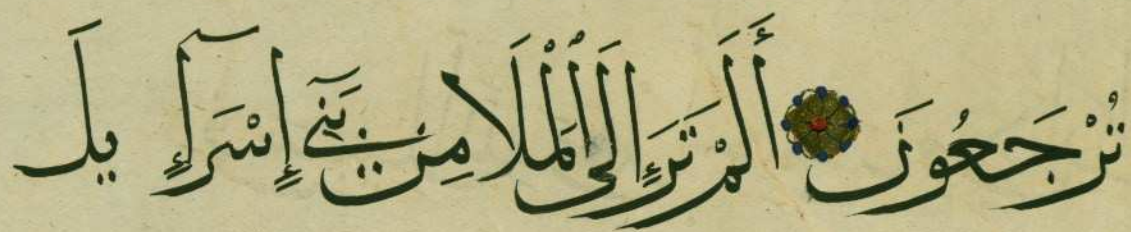 تُرْجَعُونَ أَلَمْ تَرَ إِلَى ٱلْمَلَاِ مِنْ بَنِٓي إِسْرَآءِيلَ